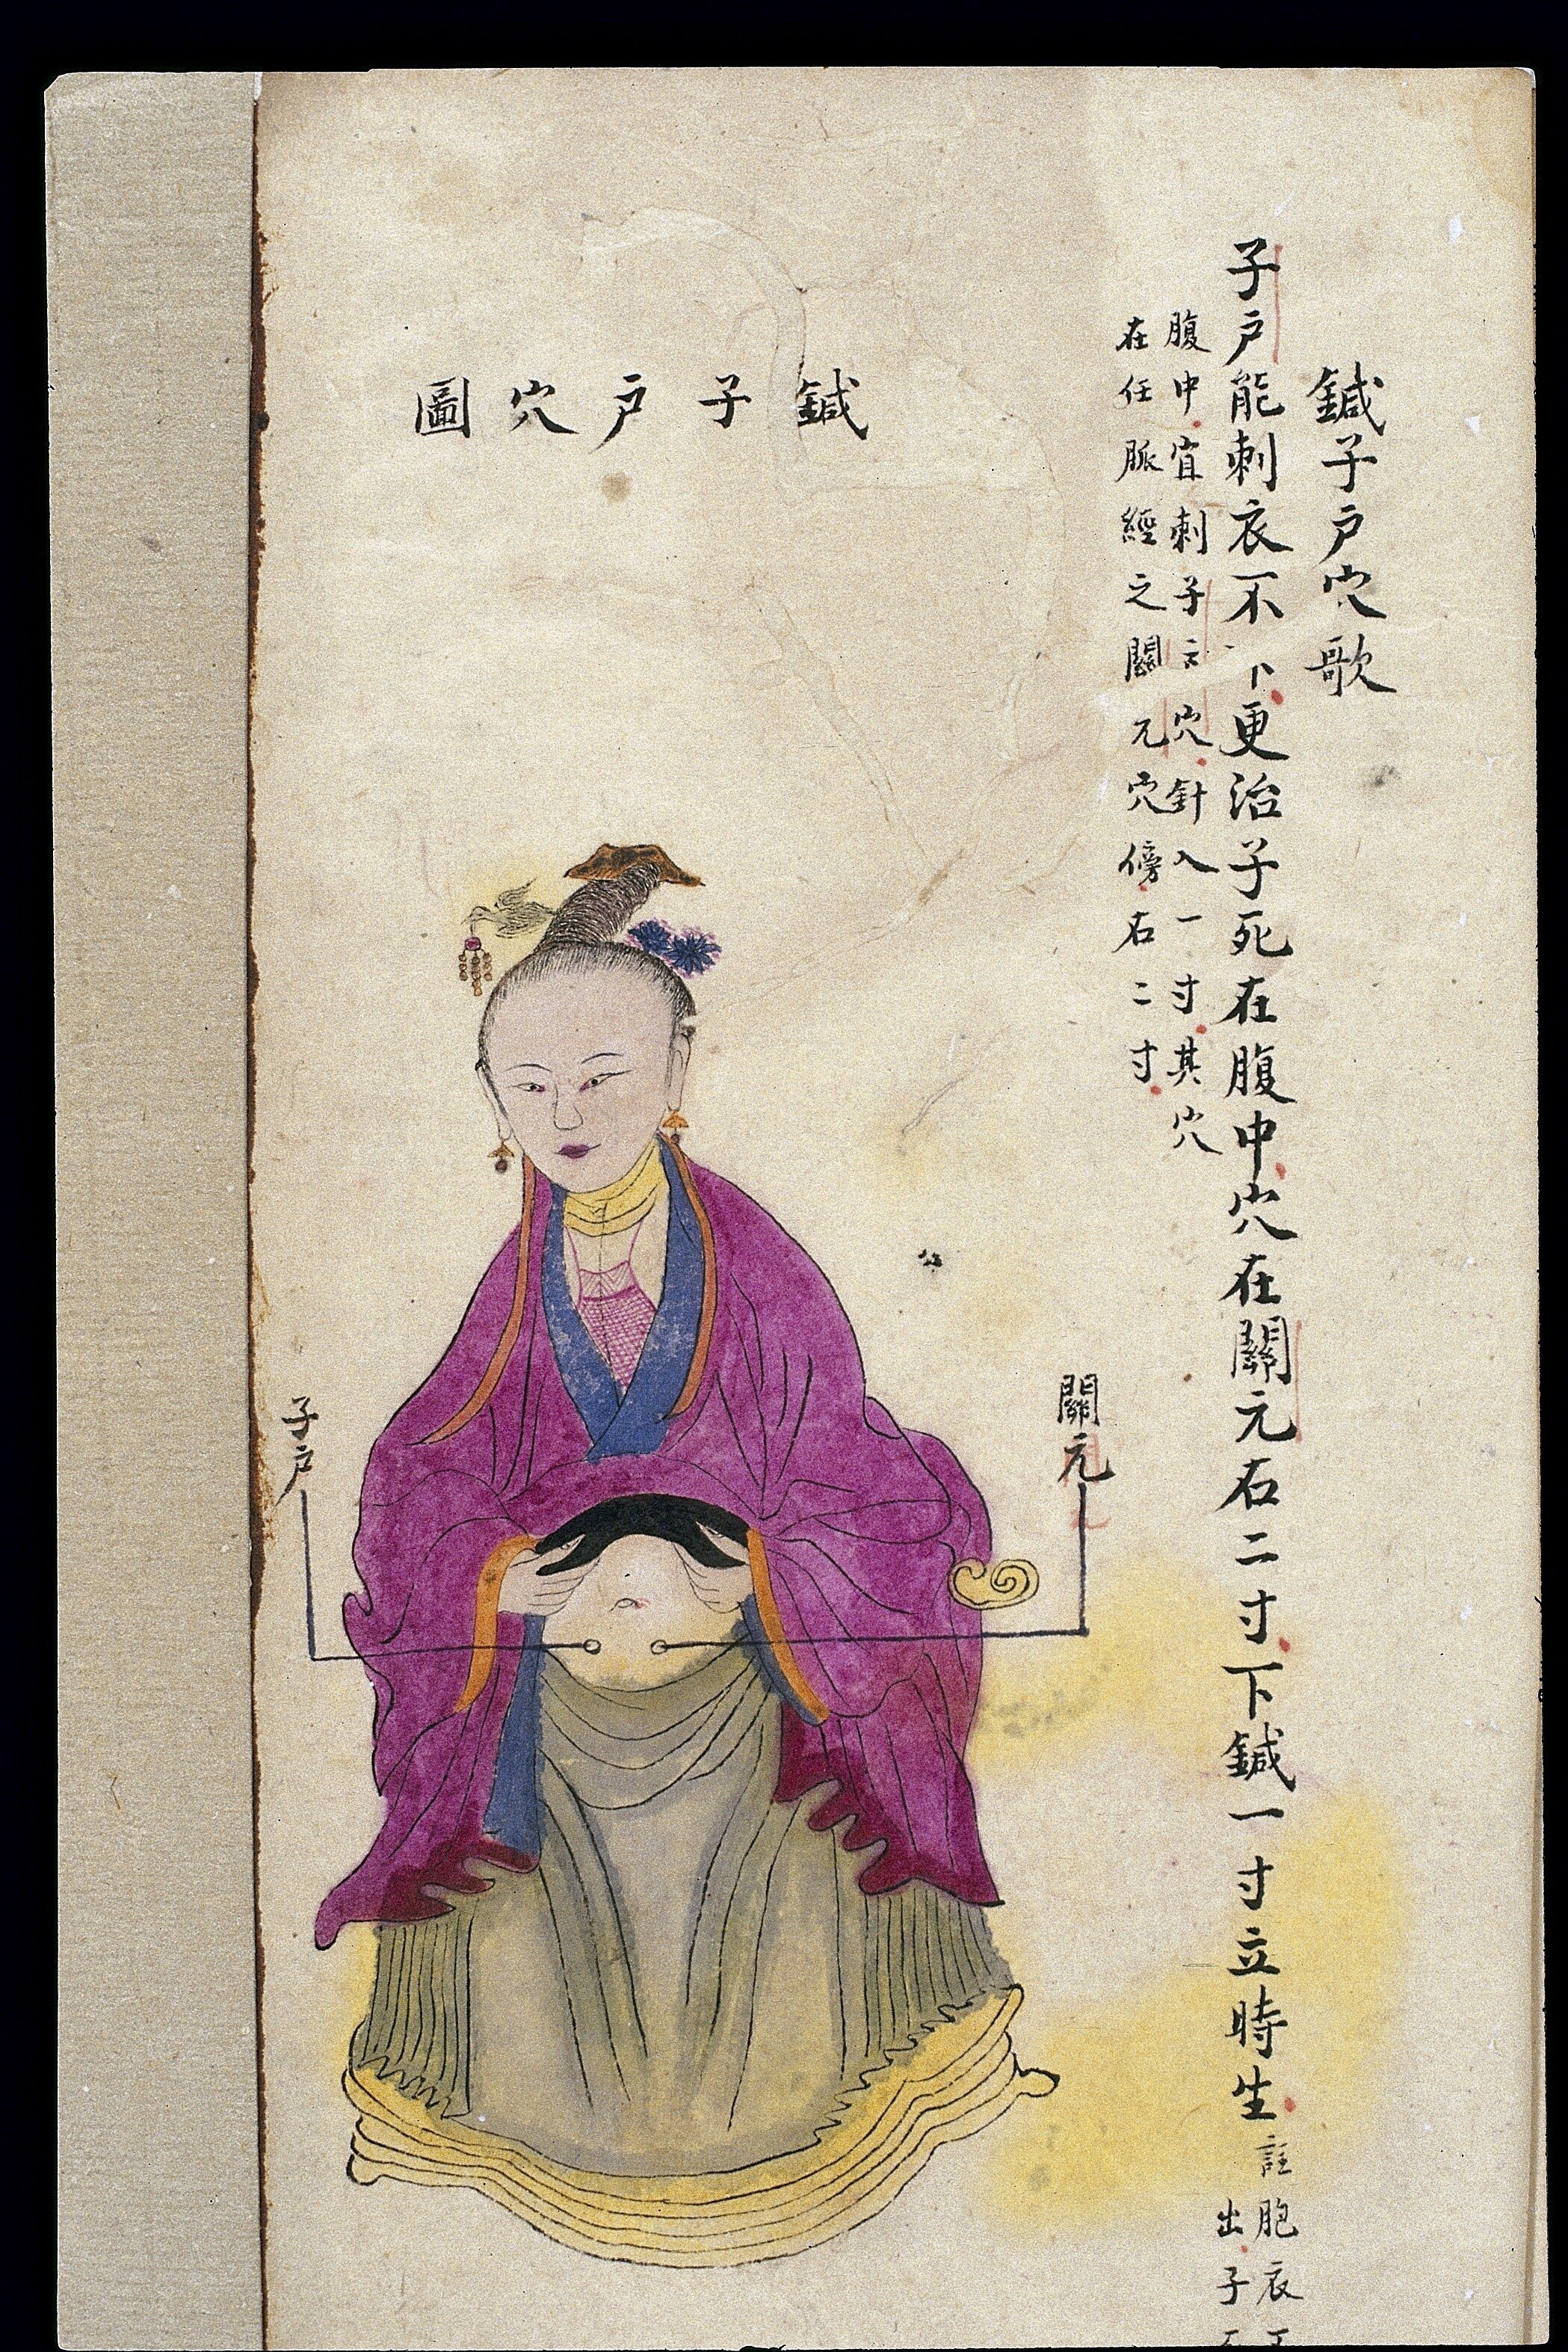 鍼子戶穴歌
子戶能刺衣不下更治子死在腹中穴在關元右二寸下鍼一寸立時生註胞衣
出子
腹中宜刺子戶穴針入一寸其穴
在任脈經之關元穴傍右二寸
鍼子戶穴圖
關元
子戶